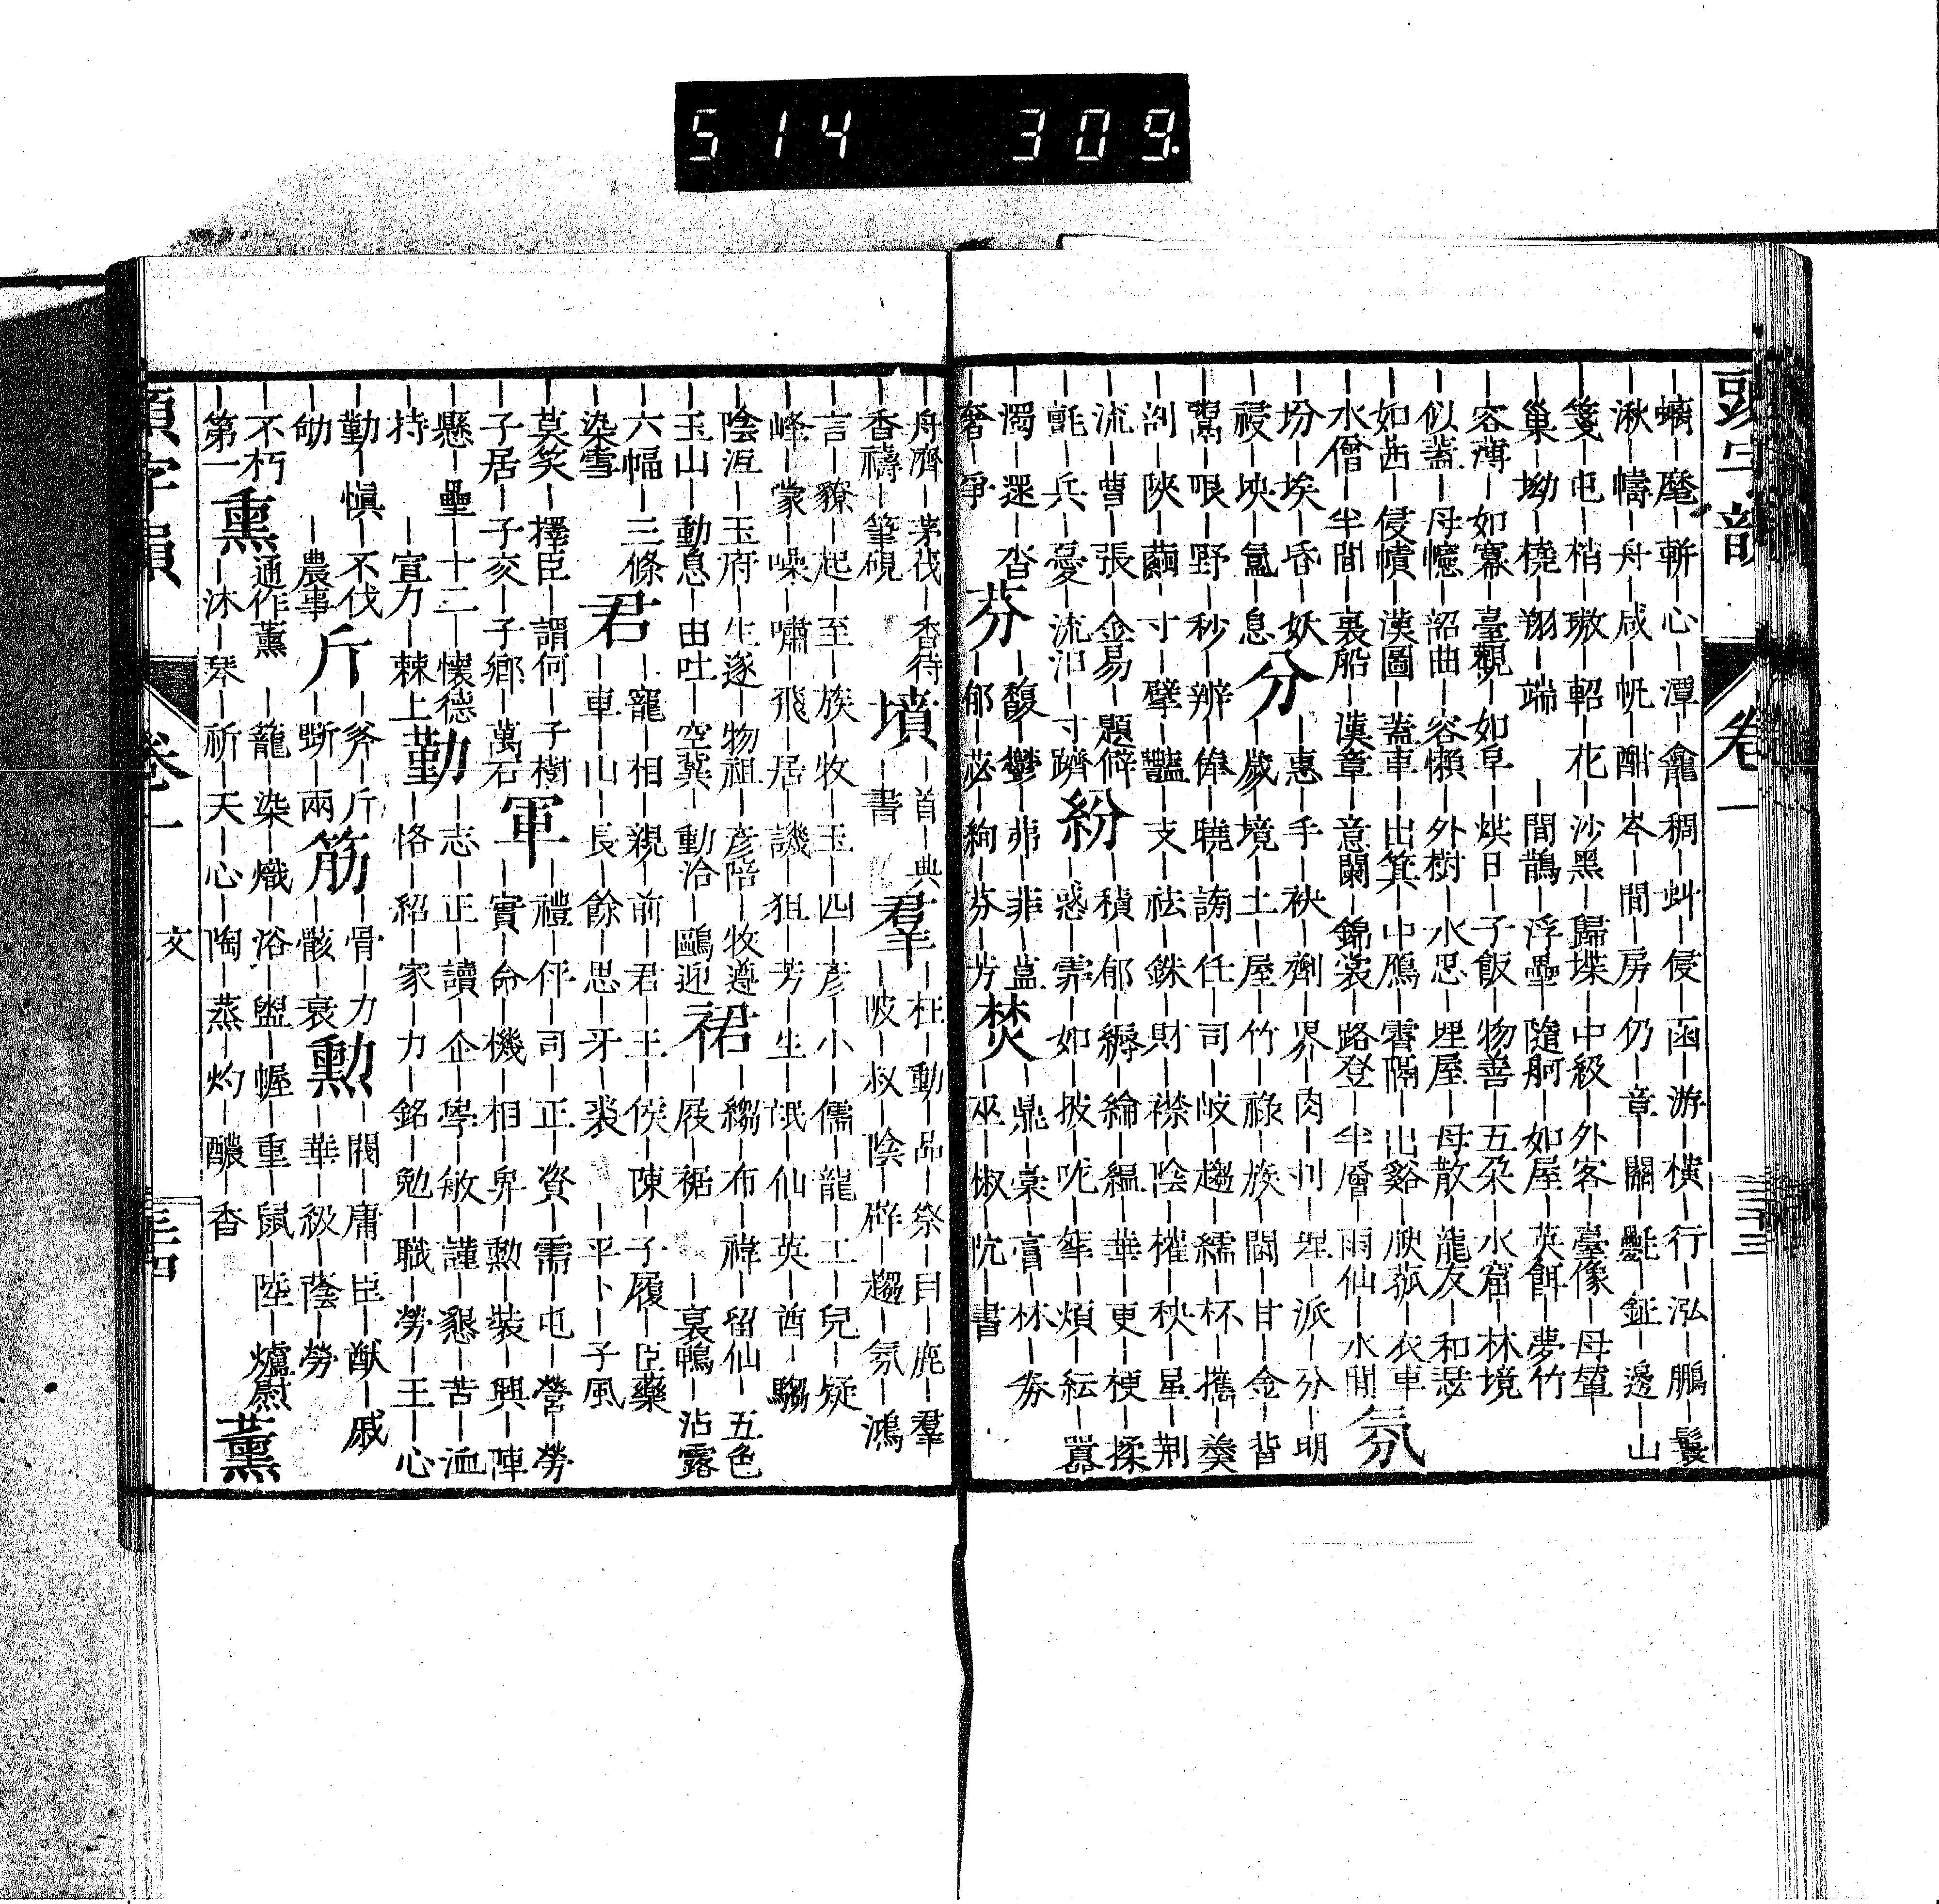 5 14 309.
頭字韻 卷一 三三
｜螭｜麾｜軿｜心｜潭｜龕｜稠｜虯｜侵｜函｜游｜橫｜行｜泓｜鵬｜鬟
｜湫｜幬｜舟｜咸｜帆｜酣｜岑｜間｜房｜仍｜章｜關｜氍｜鉦｜邊｜山
｜箋｜屯｜梢｜璈｜軺｜花｜沙黑｜歸堞｜中級｜外客｜臺像｜母輦
｜巢｜坳｜橈｜翔｜端
｜間鵲｜浮壘｜隨舸｜如屋｜英餌｜夢竹
｜容薄｜如冪｜臺觀｜如阜｜烘日｜子飯｜物善｜五朶｜水窟｜林境
｜似蓋｜母幰｜韶曲｜容懶｜外樹｜水思｜埋屋｜母散｜龍友｜和瑟
｜如茜｜侵幘｜漢圖｜蓋車｜出箕｜中鴈｜霄隔｜出谿｜腴菰｜衣車
｜水僧｜半間｜裏船｜漢章｜意闌｜錦裳｜路登｜半層｜雨仙｜水閒
氛
｜坋｜埃｜昏｜妖
分
｜惠｜手｜袂｜劑｜界｜肉｜圳｜野｜派｜分｜明
｜祲｜坱｜氳｜息
｜歲｜境｜土｜屋｜竹｜祿｜族｜閫｜甘｜金｜背
｜鬻｜喂｜野｜秒｜辨｜條｜曉｜謗｜任｜司｜岐｜趨｜繻｜杯｜攜｜羹
｜剖｜陝｜繭｜寸｜擘｜豔｜支｜祛｜銖｜財｜襟｜陰｜權｜秧｜星｜荆
｜流｜曹｜張｜金易｜題僻
紛
｜積｜郁｜縟｜綸｜縕｜華｜更｜梗｜揉
｜氈｜兵｜憂｜流汨｜寸躋
｜惑｜霏｜如｜披｜咙｜舝｜煩｜紜｜囂
｜濁｜還｜沓
芬
｜馥｜鬱｜弗｜菲｜苾
｜奢｜爭
｜郁｜苾｜馞｜芬｜芳
焚
｜鼎｜槀｜膏｜林｜券
｜巫｜椒｜坑｜書
｜舟濟｜茅茷｜香待
｜香禱｜筆硯
墳
｜首｜典
｜書
羣
｜枉｜動｜品｜祭｜目｜鹿｜羣
｜陂｜叔｜陰｜辟｜趨｜氛｜鴻
｜言｜獠｜起｜至｜族｜牧｜玉｜四｜彦｜小｜儒｜龍｜工｜兒｜疑
｜峰｜蒙｜噪｜嘯｜飛｜居｜譏｜狙｜芳｜生｜氓｜仙｜英｜酋｜騶
｜陰沍｜玉府｜生逐｜物祖｜彦陪｜牧遵
裙
｜縐｜布｜褘｜留仙｜五色
｜玉山｜動息｜由吐｜空冀｜動洽｜鷗迎
｜屐｜裾｜裛鴨｜沾露
｜六幅｜三條
君
｜寵｜相｜親｜前｜君｜王｜侯｜陳｜子｜履｜臣藥
｜染雪
｜車｜山｜長｜餘｜思｜牙｜裘｜平｜卜｜子風
｜莫笑｜擇臣｜謂何｜子樹
軍
｜禮｜伻｜司｜正｜資｜需｜屯｜營｜勞
｜子居｜子亥｜子鄉｜萬石
｜實｜命｜機｜相｜畀｜勲｜裝｜興｜陣
｜懸｜壘｜十二｜懷德
勤
｜志｜正｜讀｜企｜學｜敏｜謹｜懇｜苦｜洫
｜持
｜宣力｜棘上
｜恪｜紹｜家｜力｜銘｜勉｜職｜勞｜王｜心
｜勤｜愼｜不伐
｜劬
｜農事
斤
｜斧｜斤
｜斲｜兩
筋
｜骨｜力
｜骸｜衰
勲
｜閥｜庸｜臣｜猷｜戚
｜華｜級｜蔭｜勞
｜不朽
｜第一
熏 通作薰
｜籠｜染｜熾｜浴｜盥｜幄｜重｜鼠｜陸｜爐慰
｜沐｜琴｜祈｜天｜心｜陶｜蒸｜灼｜醲｜香
薰
頭字韻 卷一 文 三四